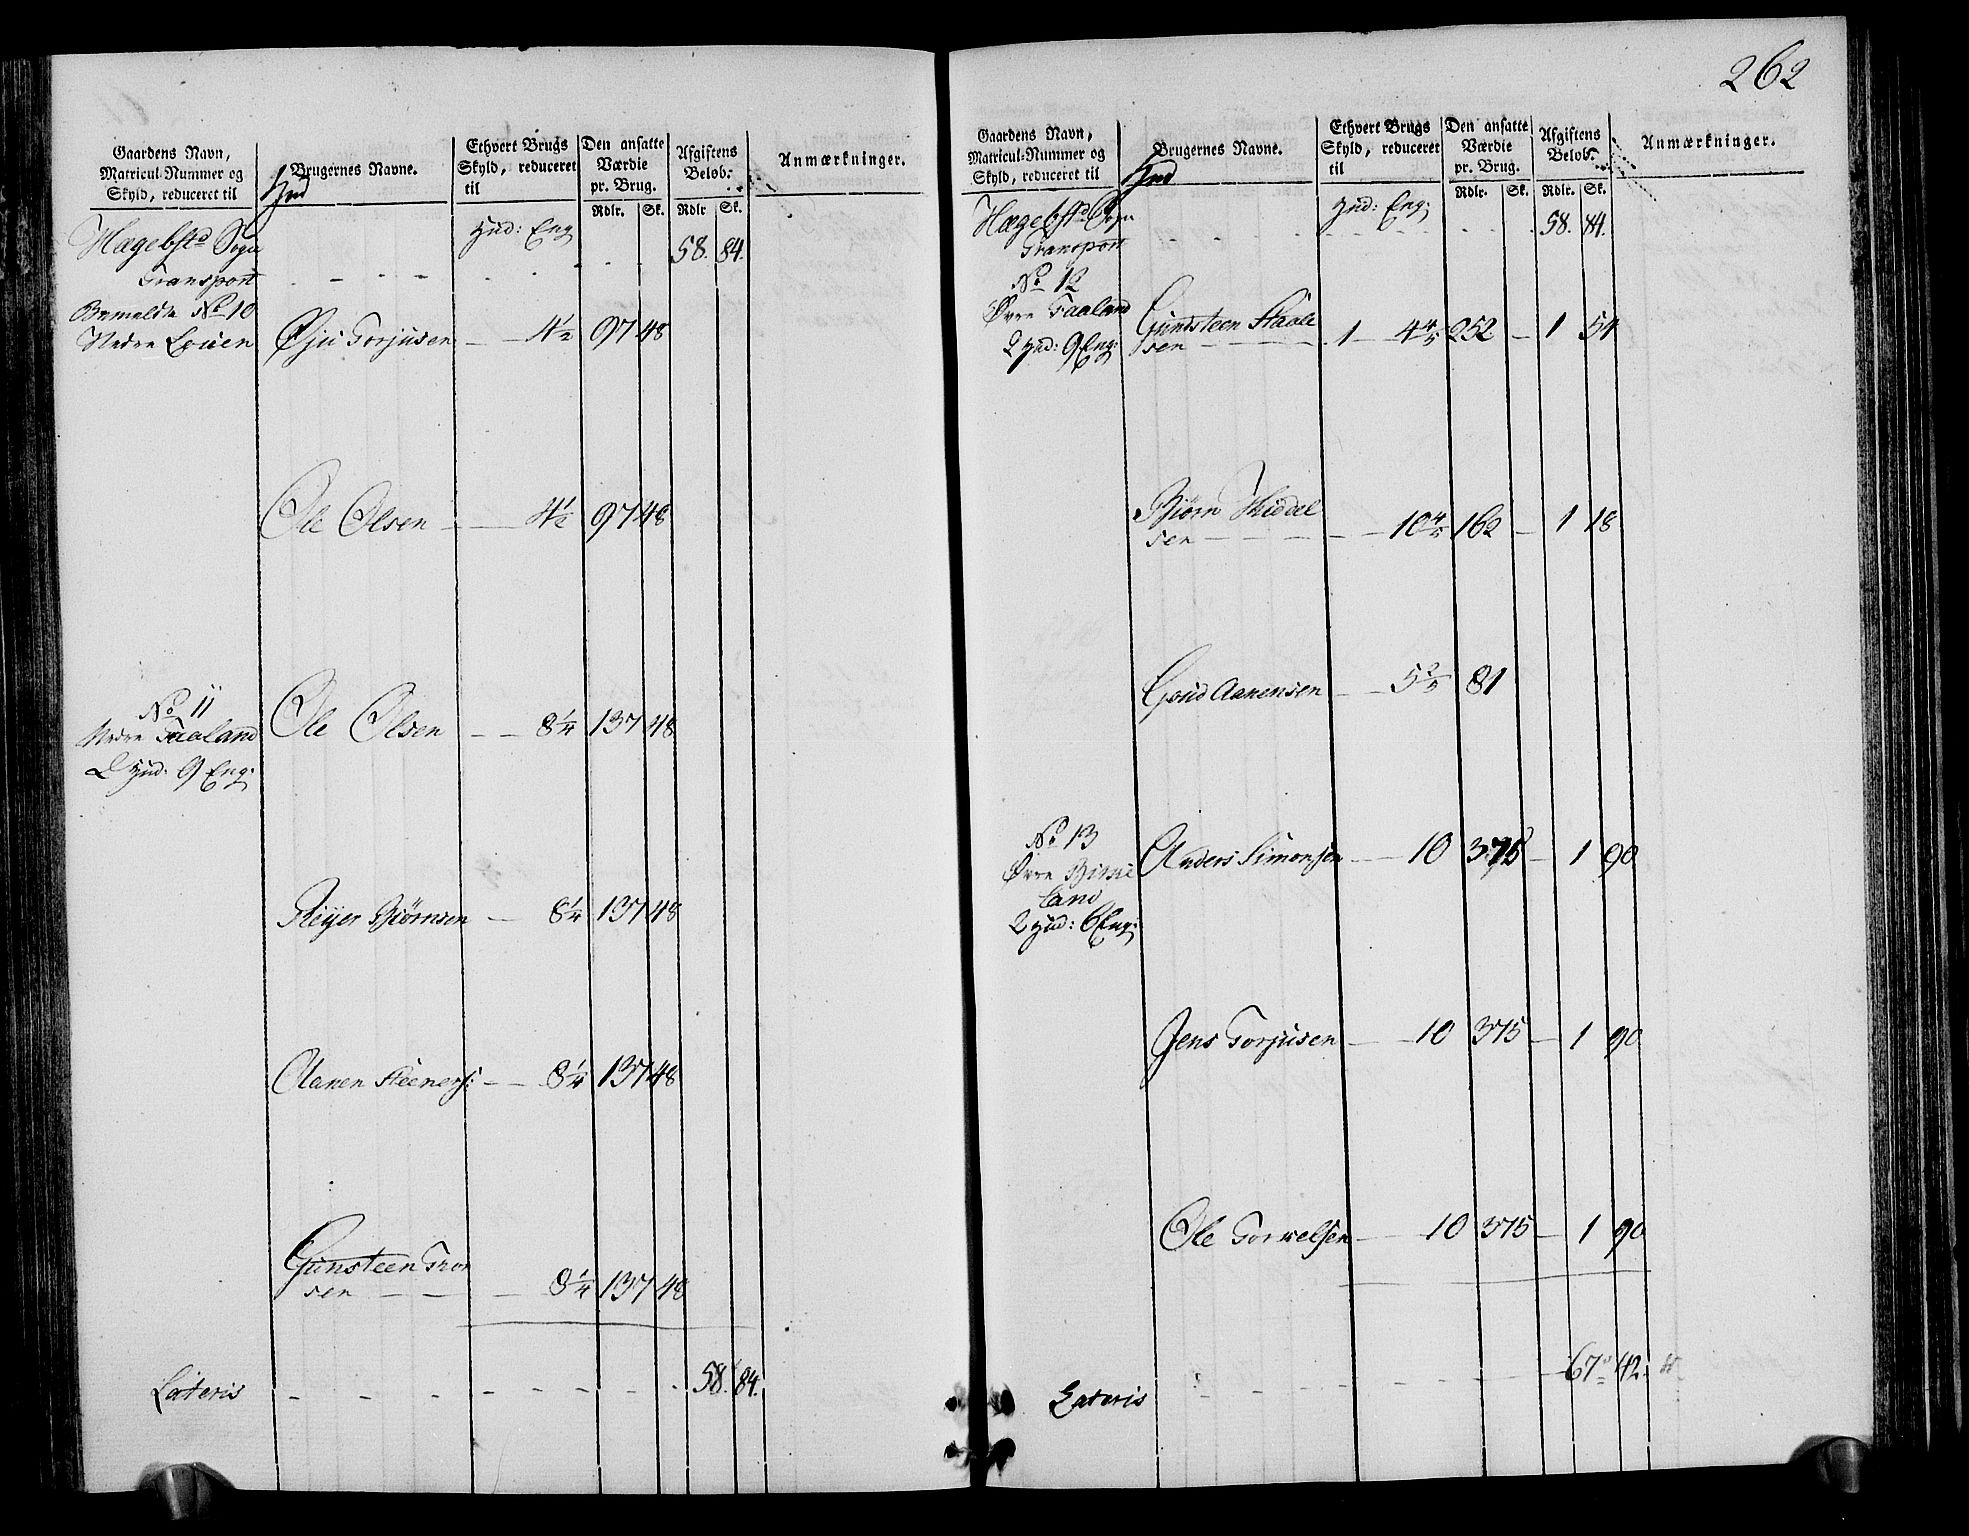 Gaardens Navn, Matricul-Nummer og Skyld, reduceret til Hud
Brugernes Navne.
Ethvert Brugs Skyld, reduceret til
Den ansatte Værdie pr. Brug.
Rdlr. Sk.
Afgiftens Belob.
Rdlr Sk.
Anmærkninger.
Hægebstd Sogn Hud: Eng
Transport 58. 84.
Bemeldte No 10
Nedre Eouen Øju Torjusen 4½ 97 48
Ole Olsen 4½ 97 48
No 11
Nedre Faaland Ole Olsen 8¼ 137 48
2 Hud: 9 Eng:
Reyer Biørnsen 8¼ 137 48
Aanen Steeners: 8¼ 137 48
Gunsteen Tron
sen 8¼ 137 48
Lateris 58. 84.
262
Gaardens Navn, Matricul-Nummer og Skyld, reduceret til Hud
Brugernes Navne.
Ethvert Brugs Skyld, reduceret til
Den ansatte Værdie pr. Brug.
Rdlr. Sk.
Afgiftens Belob.
Rdlr. Sk.
Anmærkninger.
Hægebstd Sogn Hud: Eng:
Transport 58. 84.
No 12
Øvre Faaland Gundsteen Staale
2 Hud: 9 Eng: sen 1 4⅘ 252 – 1 54
Biørn
sen 10⅘ 162 – 1 18
Aanensen 5⅖ 81
No 13
Øvre Anders Simonsen 10 375 – 1 90
land
2 Hud: 6 Eng:
Jens Torjusen 10 375 – 1 90
Ole Torkelsen 10 375 – 1 90
Lateris 67 42